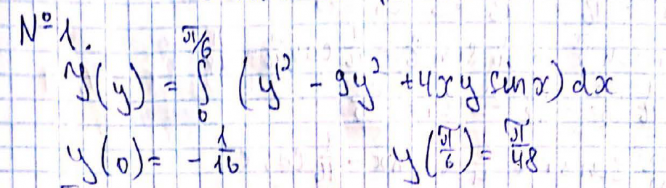 № 1.
J(y) = ∫₀^{π/6} (y'² - 9y² + 4xy sin x) dx
y(0) = -1/16    y(π/6) = π/48